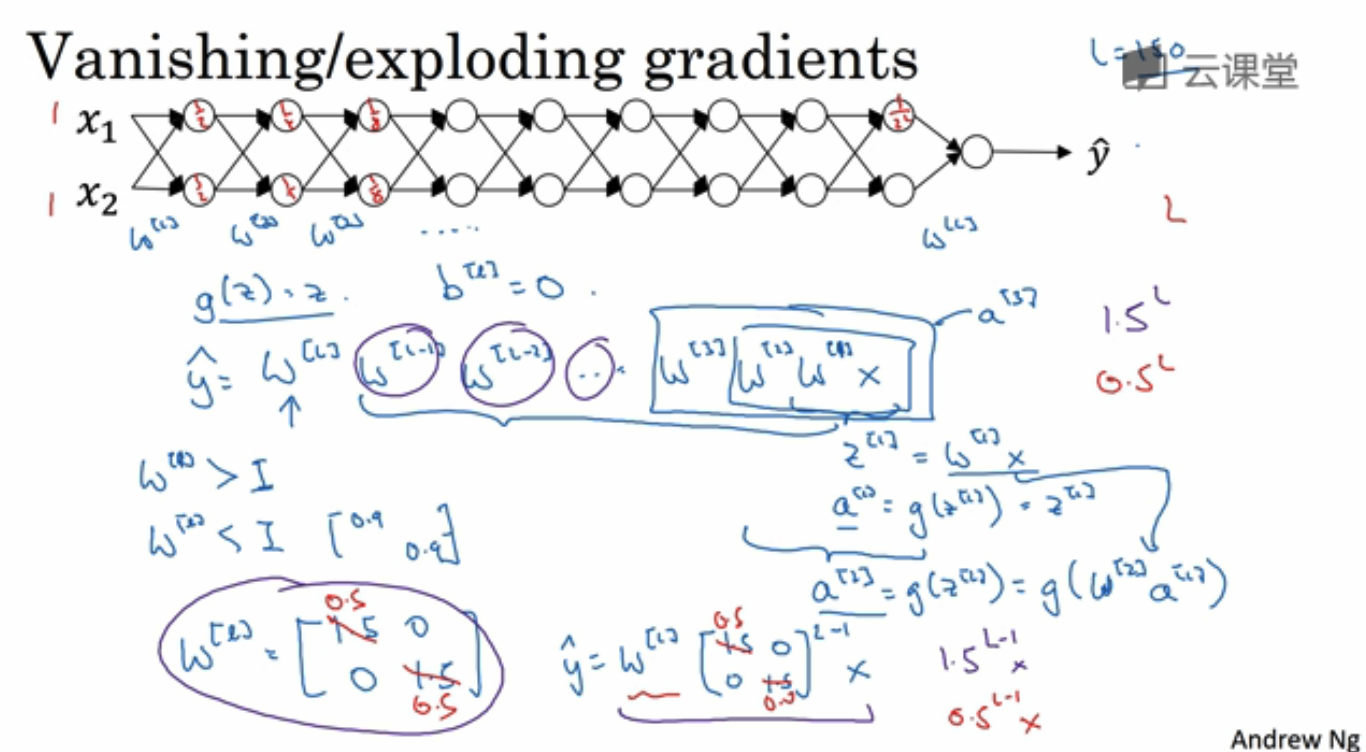 Vanishing/exploding gradients
L=150
云课堂
1 x₁ ½ ¼ ⅛ ŷ
1 x₂ ½ ¼ ⅛
L
w^[1] w^[2] w^[3] ..... w^[L]
g(z) = z. b^[l] = 0. a^[3] 1.5^L
ŷ = w^[L] w^[L-1] w^[L-2] ... w^[3] w^[2] w^[1] x 0.5^L
z^[1] = w^[1] x
w^[l] > I
a^[1] = g(z^[1]) = z^[1]
w^[l] < I [0.9 0.9]
a^[2] = g(z^[2]) = g(w^[2] a^[1])
0.5 0.5
w^[l] = [1.5 0
0 1.5]
0.5
ŷ = w^[L] [1.5 0
0 1.5]^L-1 x
1.5^L-1 x
0.5^L-1 x
Andrew Ng